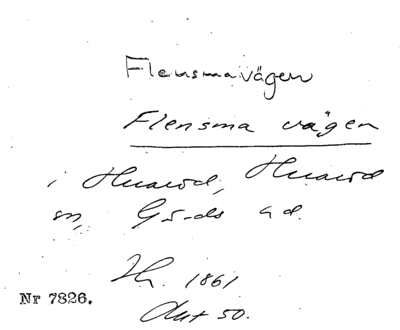 Flensmavägen
Flensma vägen
i Huarød, Huarød
sn, G ds hd.
1861
Nr 7826.
50.